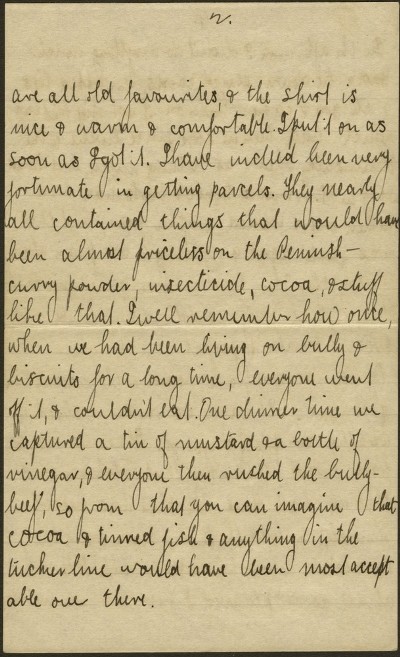 2.
are all old favourites, & the shirt is
nice & warm & comfortable. I put it on as
soon as I got it. I have indeed been very
fortunate in getting parcels. They nearly
all contained things that would have
been almost priceless on the Peninsh-
curry powder, insecticide, cocoa, & stuff
like that. I well remember how once,
when we had been living on bully &
biscuits for a long time, everyone went
off it, & couldn't eat. One dinner time we
captured a tin of mustard & a bottle of
vinegar, & everyone then rushed the bully-
beef, so from that you can imagine that
cocoa & tinned fish & anything in the
tucker line would have been most accept
able over there.